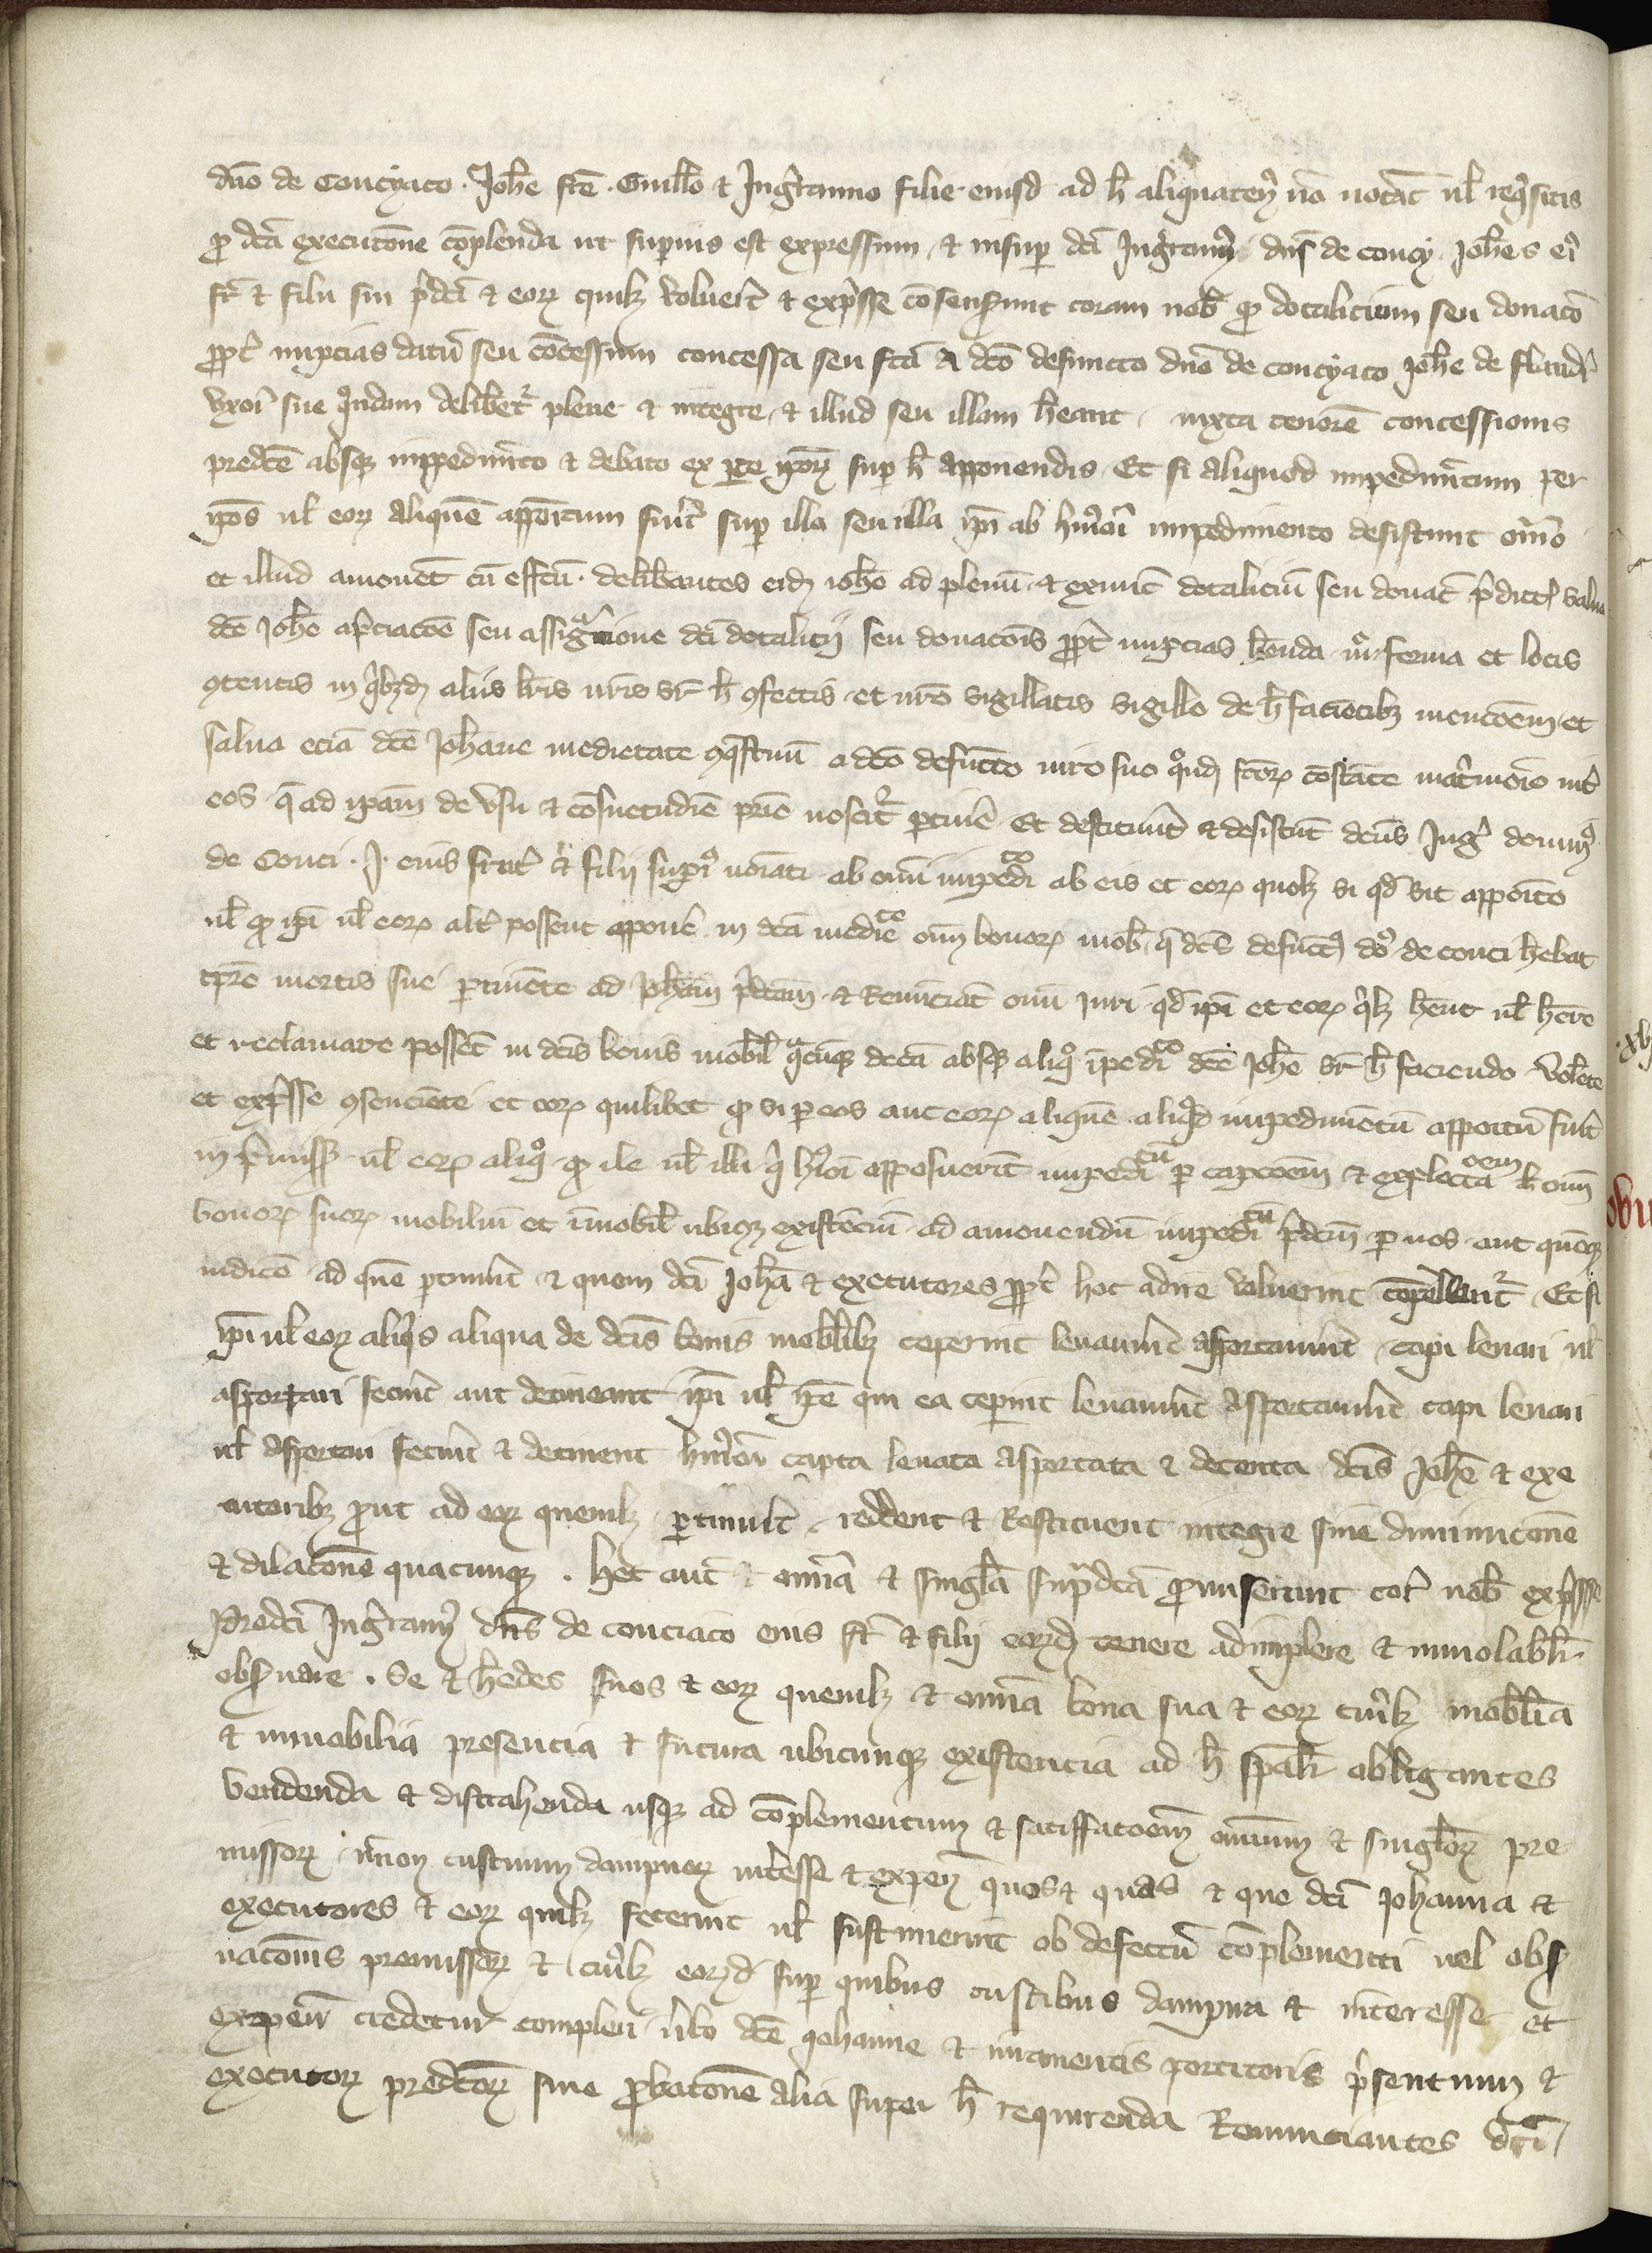 dno de Concyaco. Johe fre. Guillo et Ingranno filie eiusd ad h aliquaten non vocat ul reqsitis
p dca execucone coplenda ut superius est expressum. et insup dci Ingranus dns de coucy Johes ei
fr et filii sui pdci et eorum quilz voluert et expsse consenserunt coram nob q dotalicium seu donaco
ppt nupcias datu seu concessum concessa seu fca a dco defuncto dno de concyaco Johe de flandr
uxori sue quondam delibetr plene et integre. et illud seu illam heant. iuxta tenore concessionis
predce absq impedimeto et debato ex pte ipor sup h apponendis. Et si aliquod impedimentum per
ipos ul eor aliquem appoitum fuit sup illo seu illa ipi ab hmoi impedimento desistunt omio
et illud amouet cu effcu. deliberantes eid iohe ad plenu et exnunc dotaliciu seu donac pdict salua
dce Johe apciacoe seu assignatione dci dotalicij seu donacois ppt nupcias henda in forma et locis
contentis in qbzd aliis lris nris sr h confectis et nro sigillatis sigillo de h facientibz mencoem et
salua ecia dce Johanne medietate conqstuu a dco defuncto viro suo quond fcor costate matrimoio int
eos q ad ipam de usu et cosuetudie prie noscitr ptine. Et destitunt et desistut dcus Ingr dominus
de Couci. J. eius frat et filij superi noiati ab omi impedito ab eis et eor quolz si qd sit appoito
ul q ipi ul eor alt possent appone in dca mediete oim bonor mob q dcs defuncts dns de couci hebat
tpre mortis sue ptinete ad Joham pdcam. et Renunciat omi iuri qd ipi et eor qlz hent ul here
et reclamare possent in dcis bonis mobil qcuq deca absq aliquo ipedito dce Johe sr h faciendo. volete
et expsse consenciente et eor quilibet q si p eos aut eor aliquem aliqd impedimentu appoitu fuit
in pmissis ul eor aliquo q ile ul illi q hmoi apposuerit impeditu p capcoem et explectacoem h oim
bonor suor mobiliu et imobil ubicq existenciu ad amouendu impeditu pdcm p nos aut quecq
iudice ad que ptinuit et quem dci Joha et executores ppt hoc adire voluerint copellantr. Et si
ipi ul eor aliqs aliqua de dcis bonis mobilibz ceperint leuauint asportauint. capi leuari ul
asportari fecint aut detineant ipi ul ipe qui ea ceperint leuauint asportauint capi leuari
ul asportari fecint et detinent hmoi capta leuata asportata et detenta dcis Johe et exe
cutoribz put ad eor quemlz ptinuit. reddent et Restituent integre sine diminucone
et dilacone quacunq. Hec aut et omia et singla supdca pmiserunt cor nob expsse
Predci Ingranus dns de couciaco eius fr et filij eorzd tenere adimplere et inuiolabilr
obseruare. Se et hedes suos et eor quemlz et omia bona sua et eor cuilz mobilia
et immobilia presencia et futura ubicunq existencia ad h spalr obligantes
vendenda et distrahenda usq ad complementum et satisffacoem omium et singlor pre
missor. necnon custuum dampnor interesse et expen quos et quas et que dci Johanna et
executores et eor quilz fecerint ul sustinuerint ob defectu complementi uel obser
uaconis premissor et cuilz eorzd sup quibus custibus dampnis et interesse et
expen credetur compleri ulo dce Johanne et iuramentis portitoris psentium et
executor predcor sine pbacone alia super h requirenda Renunciantes dci